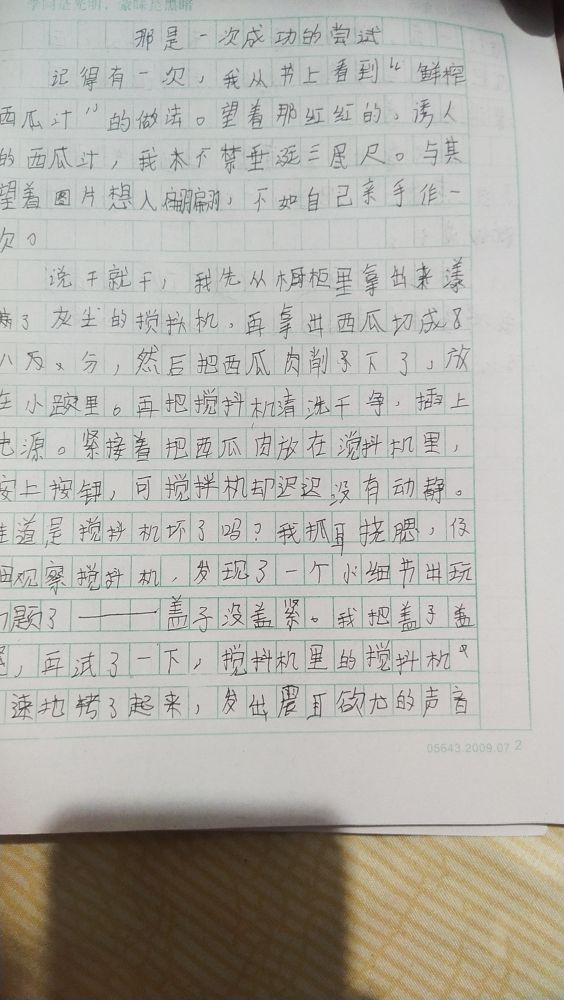 学问是光明，蒙昧是黑暗
那是一次成功的尝试
记得有一次，我从书上看到“鲜榨
西瓜汁”的做法。望着那红红的，诱人
的西瓜汁，我木不禁垂涎三尾尺。与其
望着图片想入翩翩，不如自己亲手作一
次。
说干就干，我先从橱柜里拿出来漾
满了灰尘的搅拌机，再拿出西瓜切成8
八万x分，然后把西瓜肉削了下了，放
在小碗里。再把搅抖机清洗干争，插上
电源。紧接着把西瓜肉放在搅抖机里，
安上按钮，可搅拌机却迟迟没有动静。
难道是搅抖机坏了吗？我抓耳挠腮，仔
细观察搅抖机，发现了一个小细节出玩
问题了——盖子没盖紧。我把盖子盖
紧，再试了一下，搅抖机里的搅抖机
速地转了起来，发出震耳欲尤的声音
05643.2009.07 2